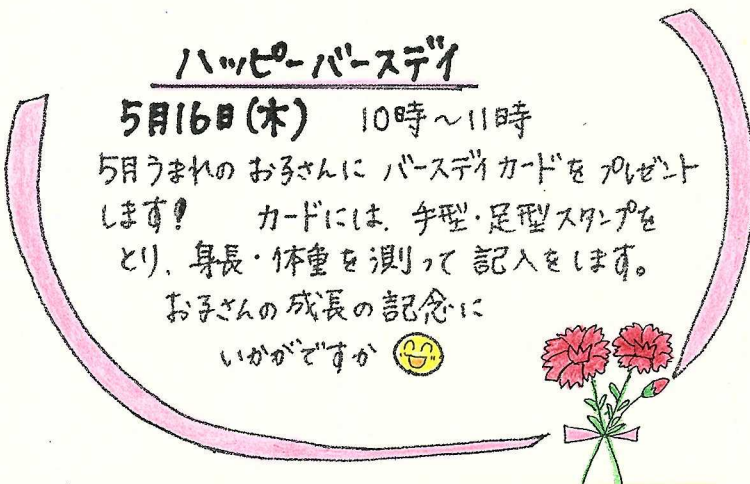 ハッピーバースデイ
5月16日(木) 10時～11時
5月うまれの お子さんに バースデイカードを プレゼント
します! カードには、手型・足型スタンプを
とり、身長・体重を測って記入をします。
お子さんの成長の記念に
いかがですか